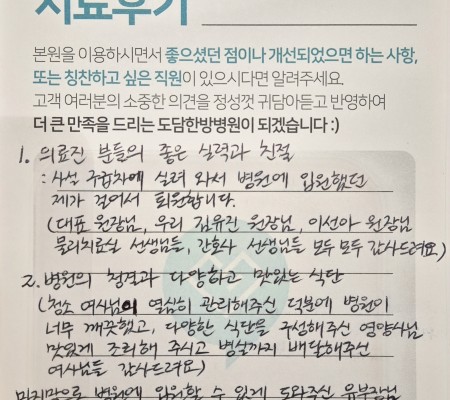 치료후기
본원을 이용하시면서 좋으셨던 점이나 개선되었으면 하는 사항,
또는 칭찬하고 싶은 직원이 있으시다면 알려주세요.
고객 여러분의 소중한 의견을 정성껏 귀담아듣고 반영하여
더 큰 만족을 드리는 도담한방병원이 되겠습니다 :)
1. 의료진 분들의 좋은 실력과 친절
: 사설 구급차에 실려 와서 병원에 입원했던
제가 걸어서 퇴원합니다.
(대표 원장님, 우리 김유진 원장님, 이선아 원장님
물리치료실 선생님들, 간호사 선생님들 모두 모두 감사드려요)
2. 병원의 청결과 다양하고 맛있는 식단
(청소 여사님의 열심히 관리해주신 덕분에 병원이
너무 깨끗했고, 다양한 식단을 구성해주신 영양사님
맛있게 조리해 주시고 병실까지 배달해주신
여사님들 감사드려요)
마지막으로 병원에 입원할 수 있게 도와주신 유부장님